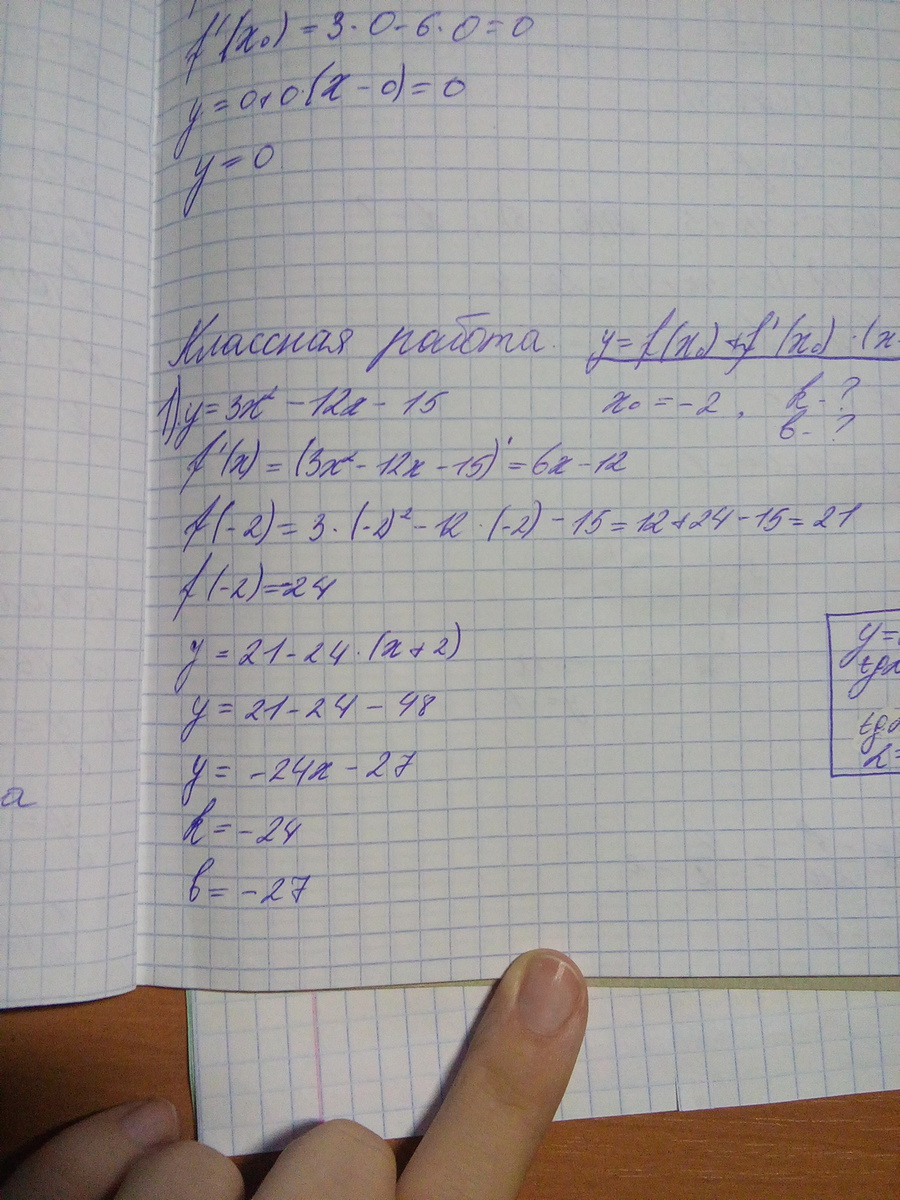 f'(x₀) = 3·0-6·0=0
y=0+0·(x-0)=0
y=0
Классная работа. y=f(x₀)+f'(x₀)·(x-
1) y=3x²-12x-15 x₀=-2, k-?
в-?
f'(x)=(3x²-12x-15)'=6x-12
f(-2)=3·(-2)²-12·(-2)-15=12+24-15=21
f(-2)=-24
y=21-24·(x+2)
y=21-24-48
y=-24x-27
k=-24
в=-27
y=
tgα
tgα
α=
а